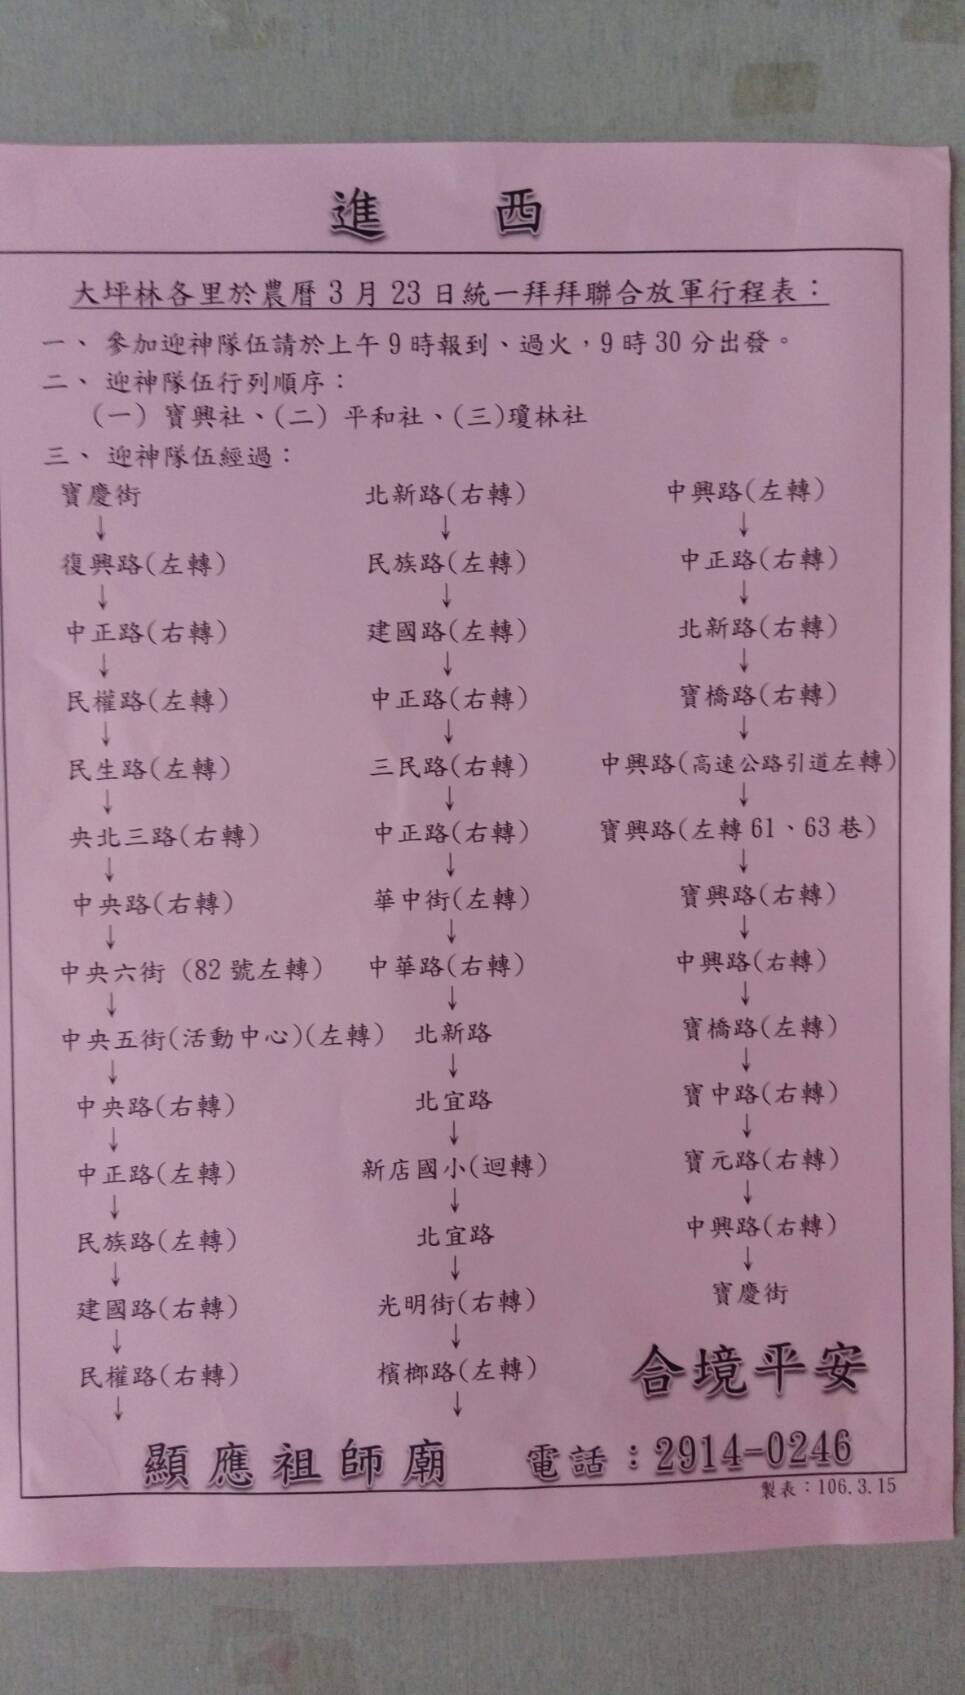 進 西
大坪林各里於農曆3月23日統一拜拜聯合放軍行程表：
一、參加迎神隊伍請於上午9時報到、過火，9時30分出發。
二、迎神隊伍行列順序：
(一) 寶興社、(二) 平和社、(三)瓊林社
三、迎神隊伍經過：
寶慶街
↓
復興路(左轉)
↓
中正路(右轉)
↓
民權路(左轉)
↓
民生路(左轉)
↓
央北三路(右轉)
↓
中央路(右轉)
↓
中央六街 (82號左轉)
↓
中央五街(活動中心)(左轉)
↓
中央路(右轉)
↓
中正路(左轉)
↓
民族路(左轉)
↓
建國路(右轉)
↓
民權路(右轉)
↓
北新路(右轉)
↓
民族路(左轉)
↓
建國路(左轉)
↓
中正路(右轉)
↓
三民路(右轉)
↓
中正路(右轉)
↓
華中街(左轉)
↓
中華路(右轉)
↓
北新路
↓
北宜路
↓
新店國小(迴轉)
↓
北宜路
↓
光明街(右轉)
↓
檳榔路(左轉)
↓
中興路(左轉)
↓
中正路(右轉)
↓
北新路(右轉)
↓
寶橋路(右轉)
↓
中興路(高速公路引道左轉)
↓
寶興路(左轉61、63巷)
↓
寶興路(右轉)
↓
中興路(右轉)
↓
寶橋路(左轉)
↓
寶中路(右轉)
↓
寶元路(右轉)
↓
中興路(右轉)
↓
寶慶街
合境平安
顯應祖師廟 電話：2914-0246
製表：106.3.15